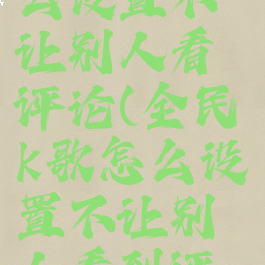 么设置不
让别人看
评论(全民
k歌怎么设
置不让别
人看到评